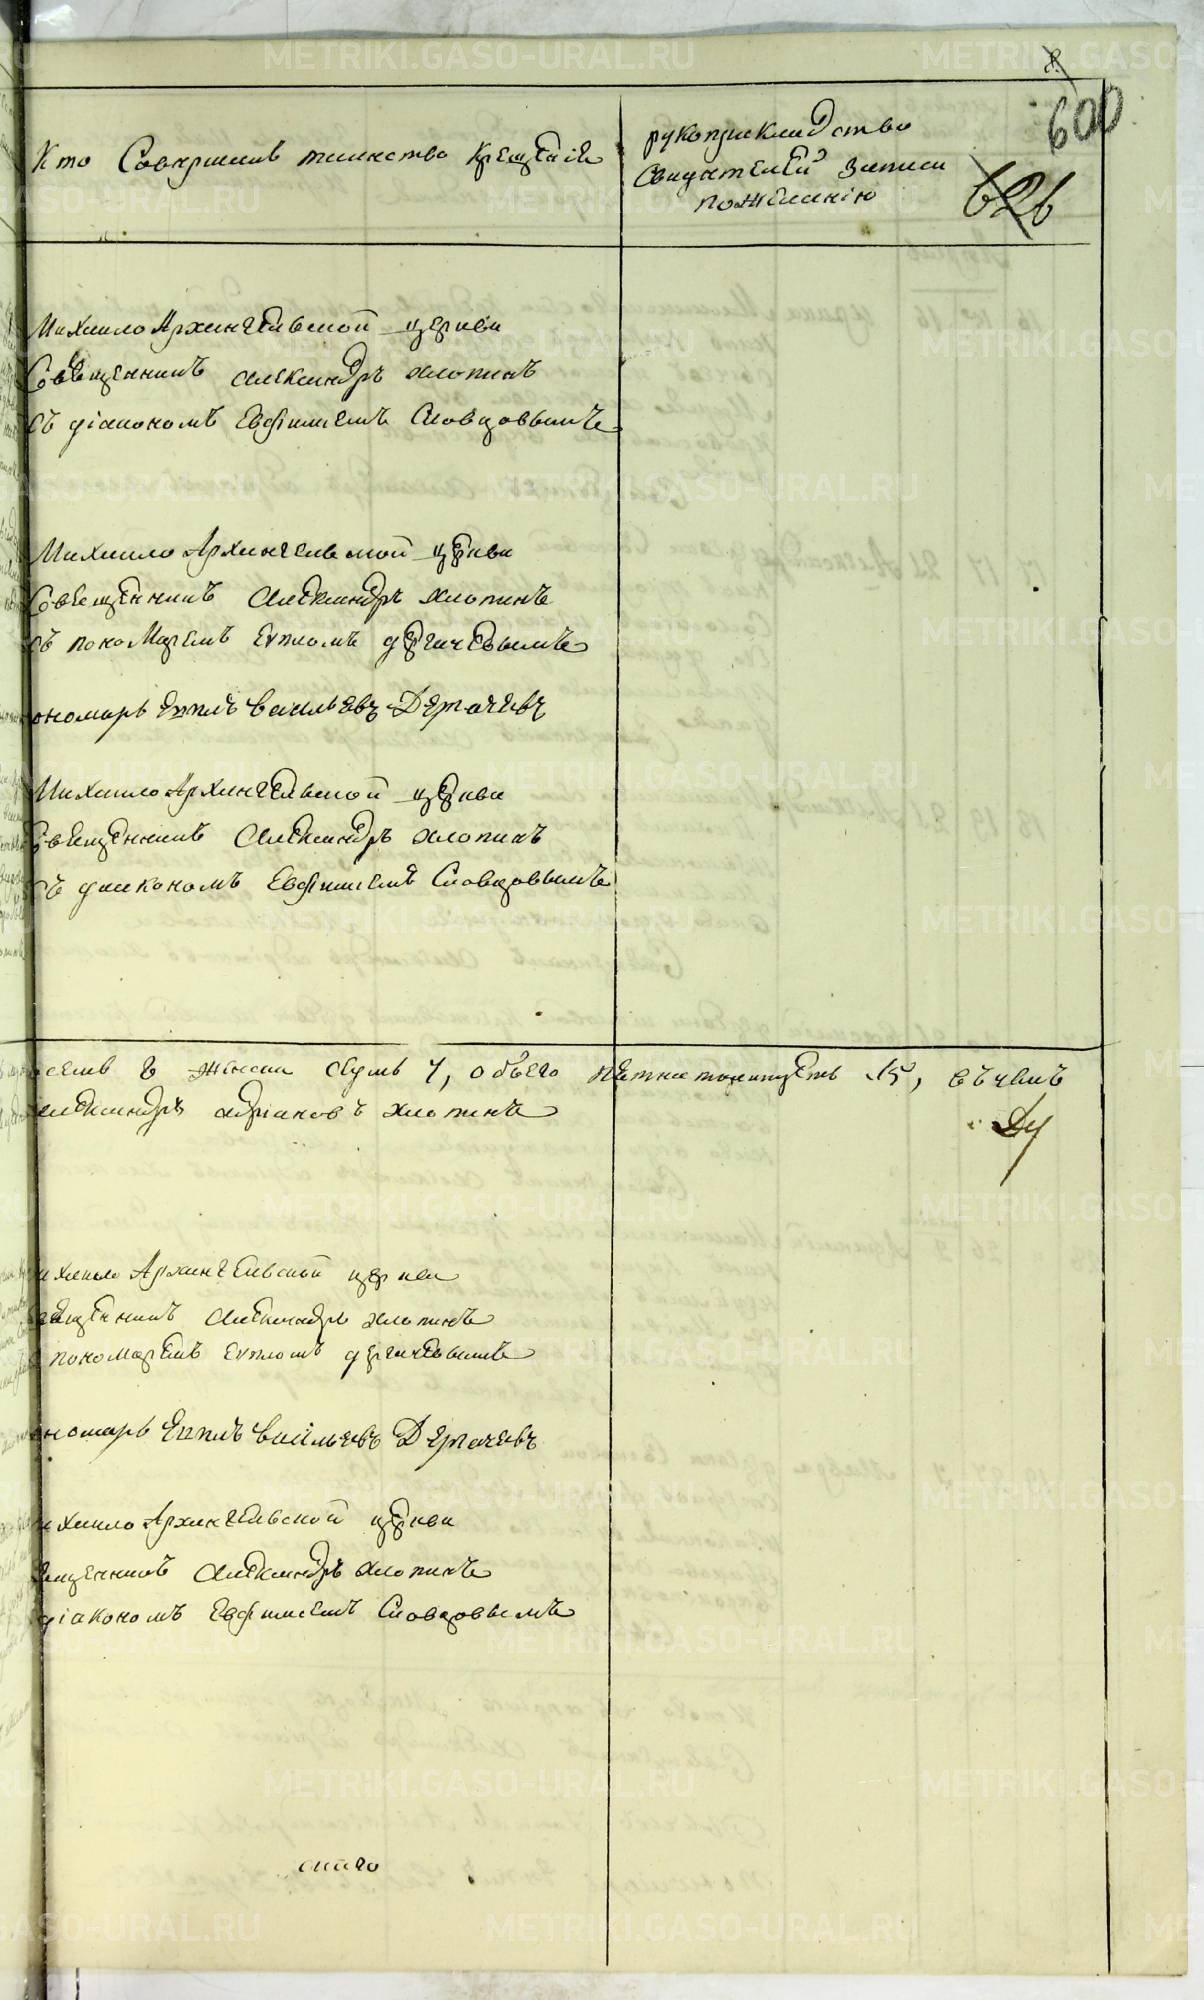 8.
600
626
Кто Совершилъ таинство крещенія
рукоприкладство
свидѣтелей записи
по желанію
Михаило Архангельской церкви
Священникъ Александръ Хлопинъ
Съ діакономъ Евфимиемъ Словцовымъ
Михаило Архангельской церкви
Священникъ Александръ Хлопинъ
съ пономаремъ Еупломъ Дергачевымъ
ономарь Еуплъ Васильевъ Дергачевъ
Михаило Архангельской церкви
Священникъ Александръ Хлопинъ
Съ диакономъ Евфимиемъ Словцовымъ
осемь 8 женска семь 7, обоего пятнатцать 15, въ чемъ
лександръ Адриановъ Хлопинъ
ихаило Архангельской церкви
священникъ Александръ Хлопинъ
пономаремъ Еупломъ Дергачевымъ
ономарь Еуплъ Васильевъ Дергачевъ
ихаило Архангельской церкви
ященникъ Александръ Хлопинъ
діакономъ Евфимиемъ Словцовымъ
METRIKI.GASO-URAL.RU